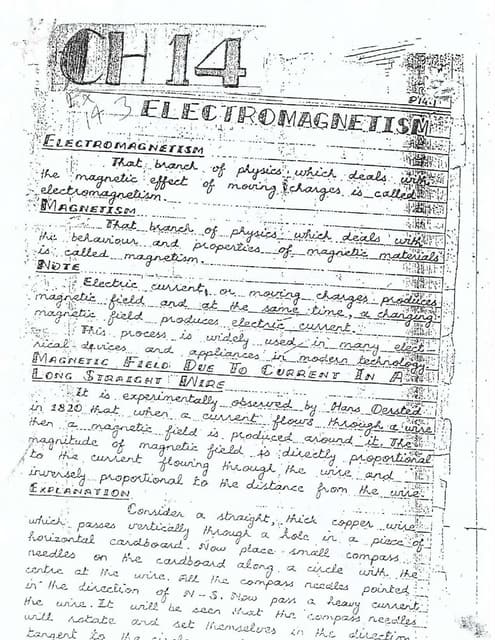 CH 14
Ex
14.3
P14.1
ELECTROMAGNETISM
ELECTROMAGNETISM
That branch of physics, which deals with
the magnetic effect of moving charges is called
electromagnetism.
MAGNETISM
That branch of physics which deals with
the behaviour and properties of magnetic materials
is called magnetism.
NOTE
Electric current, or moving charges produces
magnetic field and at the same time, a changing
magnetic field produces electric current.
This process is widely used in many elect
rical devices and appliances in modern technology
MAGNETIC FIELD DUE TO CURRENT IN A
LONG STRAIGHT WIRE
It is experimentally observed by Hans Oersted
in 1820 that when a current flows through a wire
then a magnetic field is produced around it. The
magnitude of magnetic field is directly proportional
to the current flowing through the wire and
inversely proportional to the distance from the wire.
EXPLANATION
Consider a straight, thick copper wire
which passes vertically through a hole in a piece of
horizontal cardboard. Now place small compass
needles on the cardboard along a circle with the
centre at the wire. All the compass needles pointed
in the direction of N-S. Now pass a heavy current
the wire. It will be seen that the compass needles
will rotate and set themselves in the direction
tangent to the circle